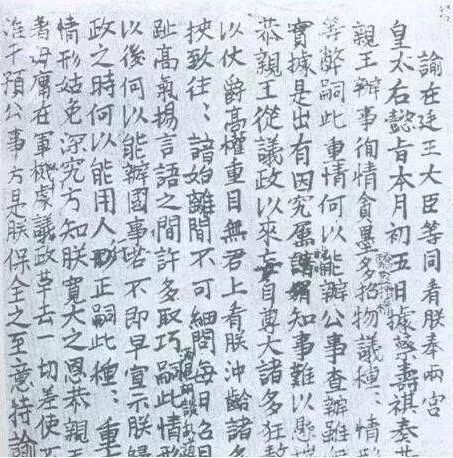 諭在廷王大臣等同看朕奉兩宮
皇太后懿旨本月初五日據蔡壽祺奏恭
親王辦事徇情貪墨多招物議種〻情形
等弊嗣此重情何以能辦公事查辦雖無
實據是出有因究屬曖昧知事難以懸揣
恭親王從議政以來妄自尊大諸多狂
以仗爵高權重目無君上看朕沖齡諸多
挾致往〻諳始離間不可細問每日召見
趾高氣揚言語之間許多取巧
以後何以能辦國事若不即早宣示朕歸
政之時何以能用人行正嗣此種〻重
情形姑免深究方知朕寬大之恩恭親王
著毋庸在軍機處議政革去一切差使不
准干預公事方是朕保全之至意特諭